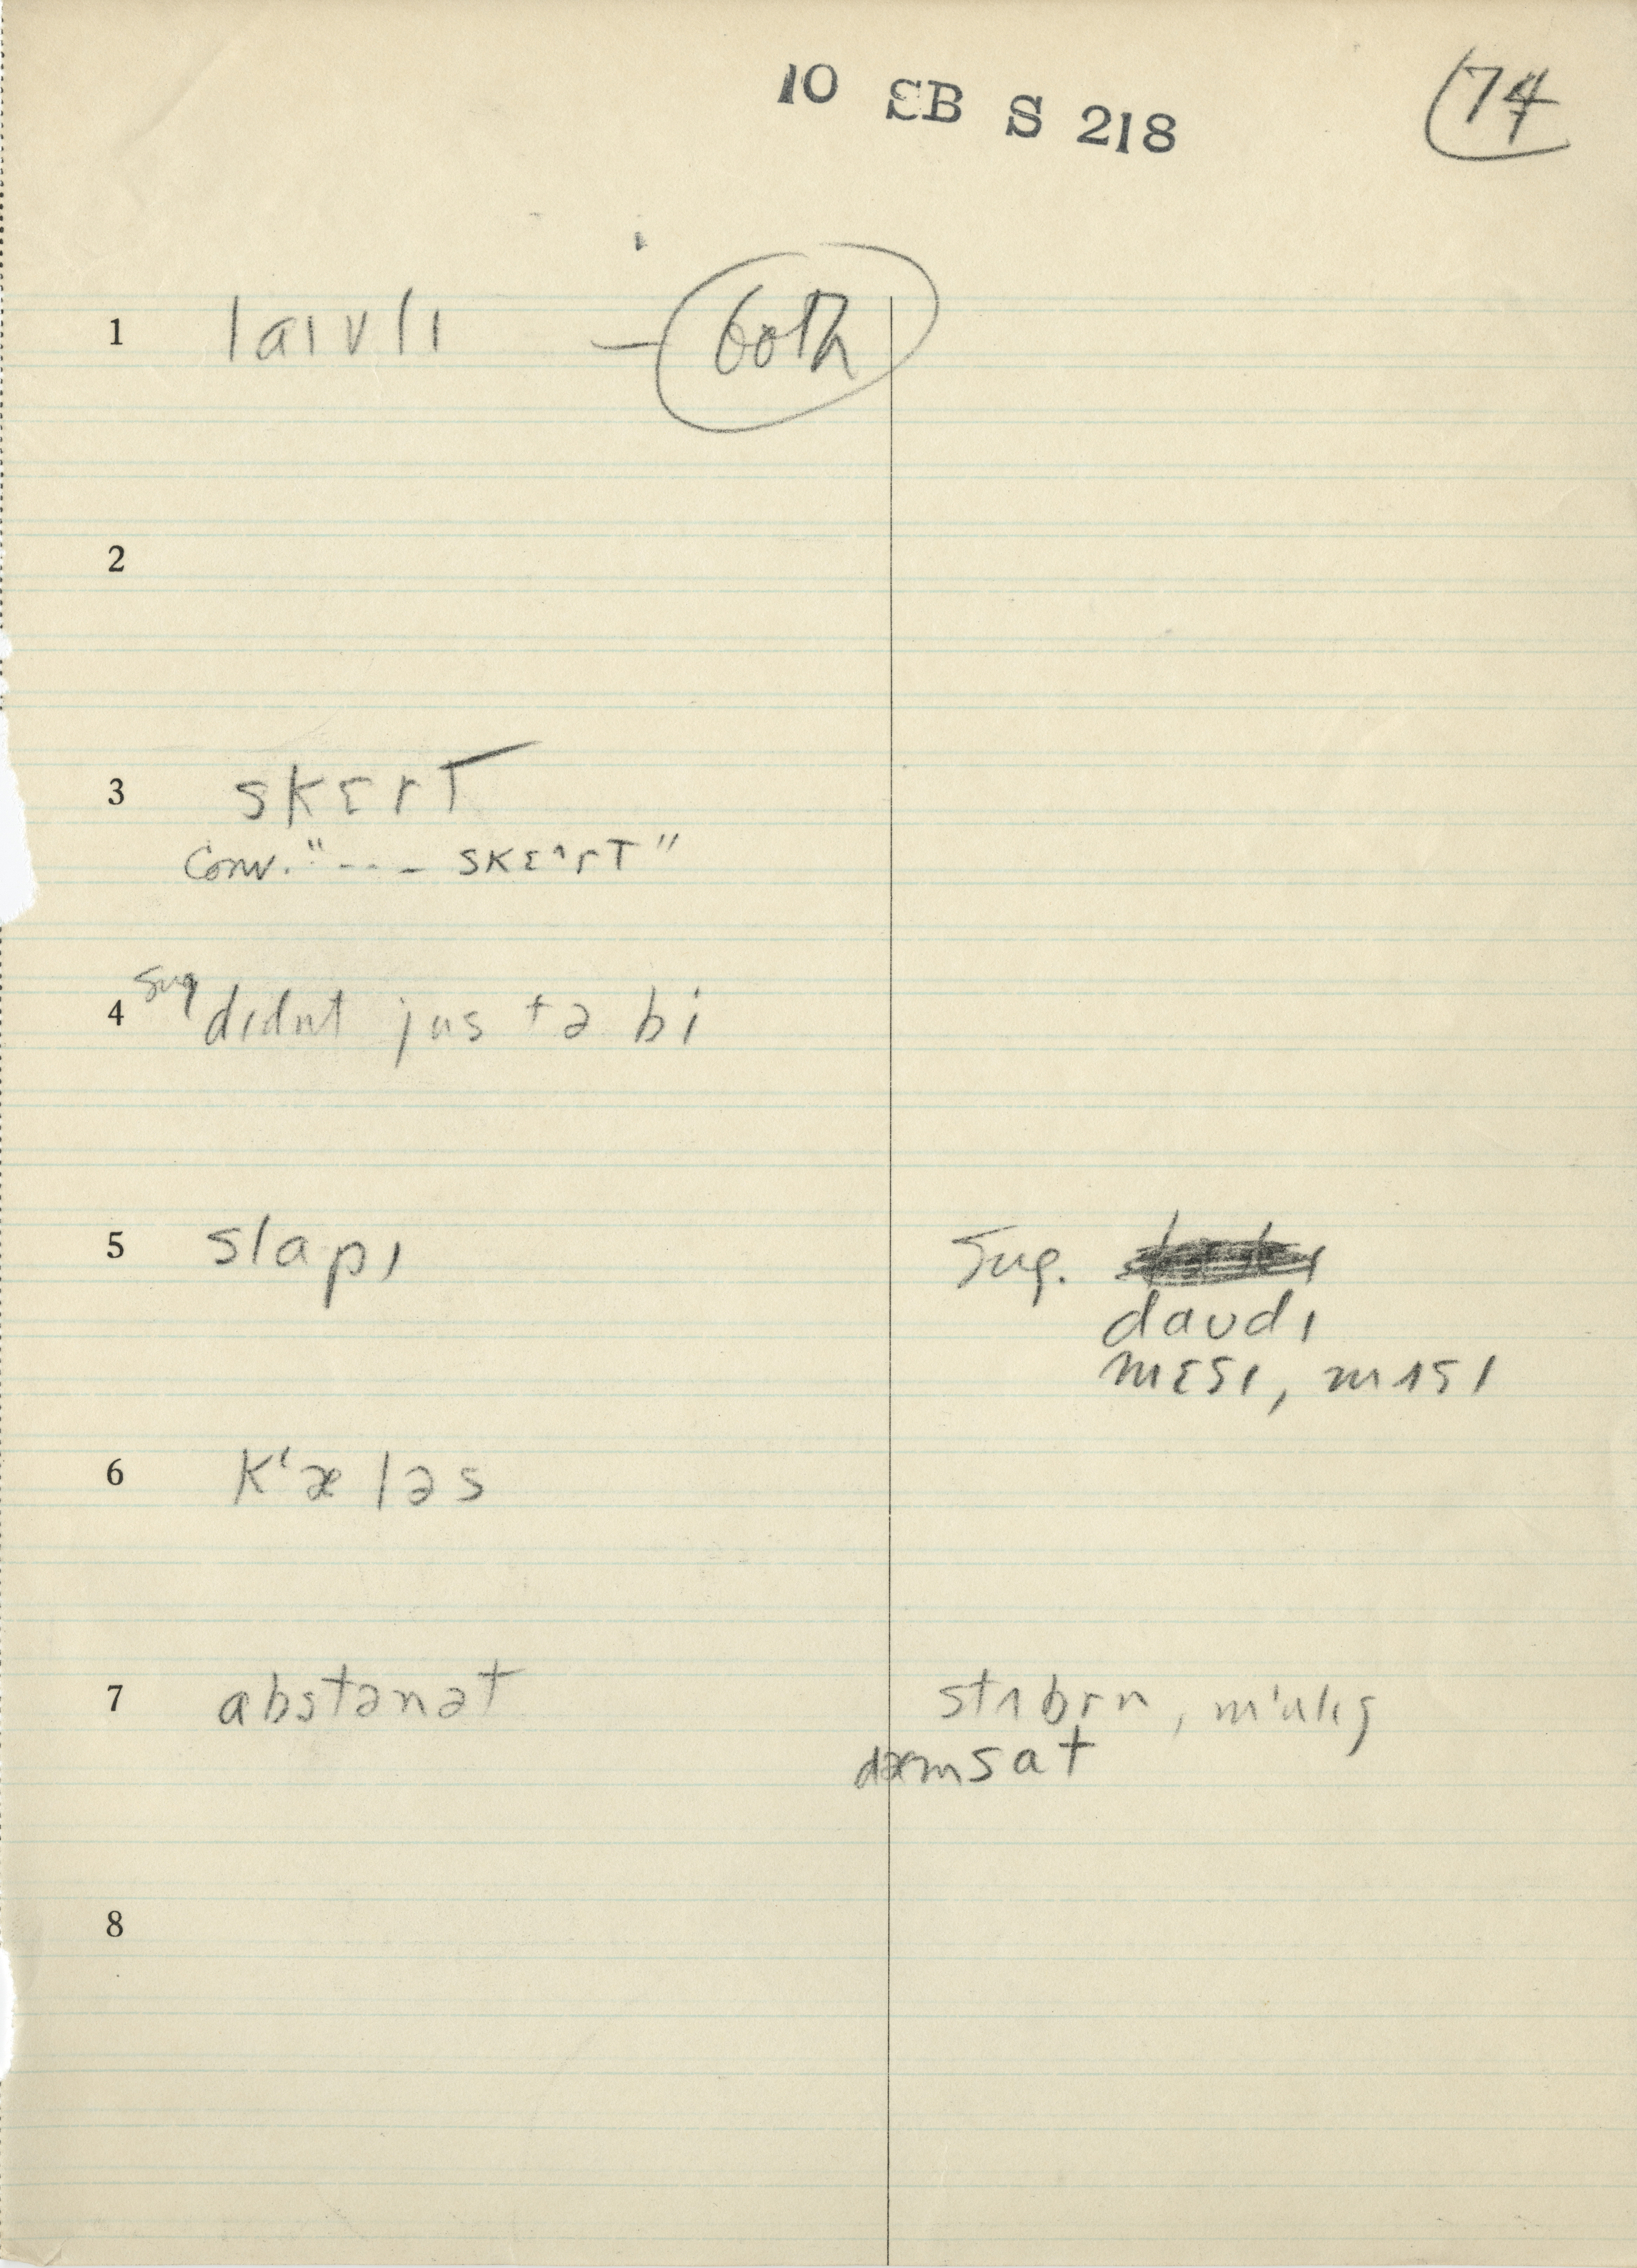 10 SB S 218
74
1 laɪvlɪ — both
2
3 skɛrt
Conv. "--- skɛ^rt"
4 Sug didnt jus tə bi
5 slapɪ Sug.
daʊdɪ
mɛsɪ, mʌsɪ
6 k'æləs
7 abstənət stʌbrn, m'ulɪʃ
dæmsat
8